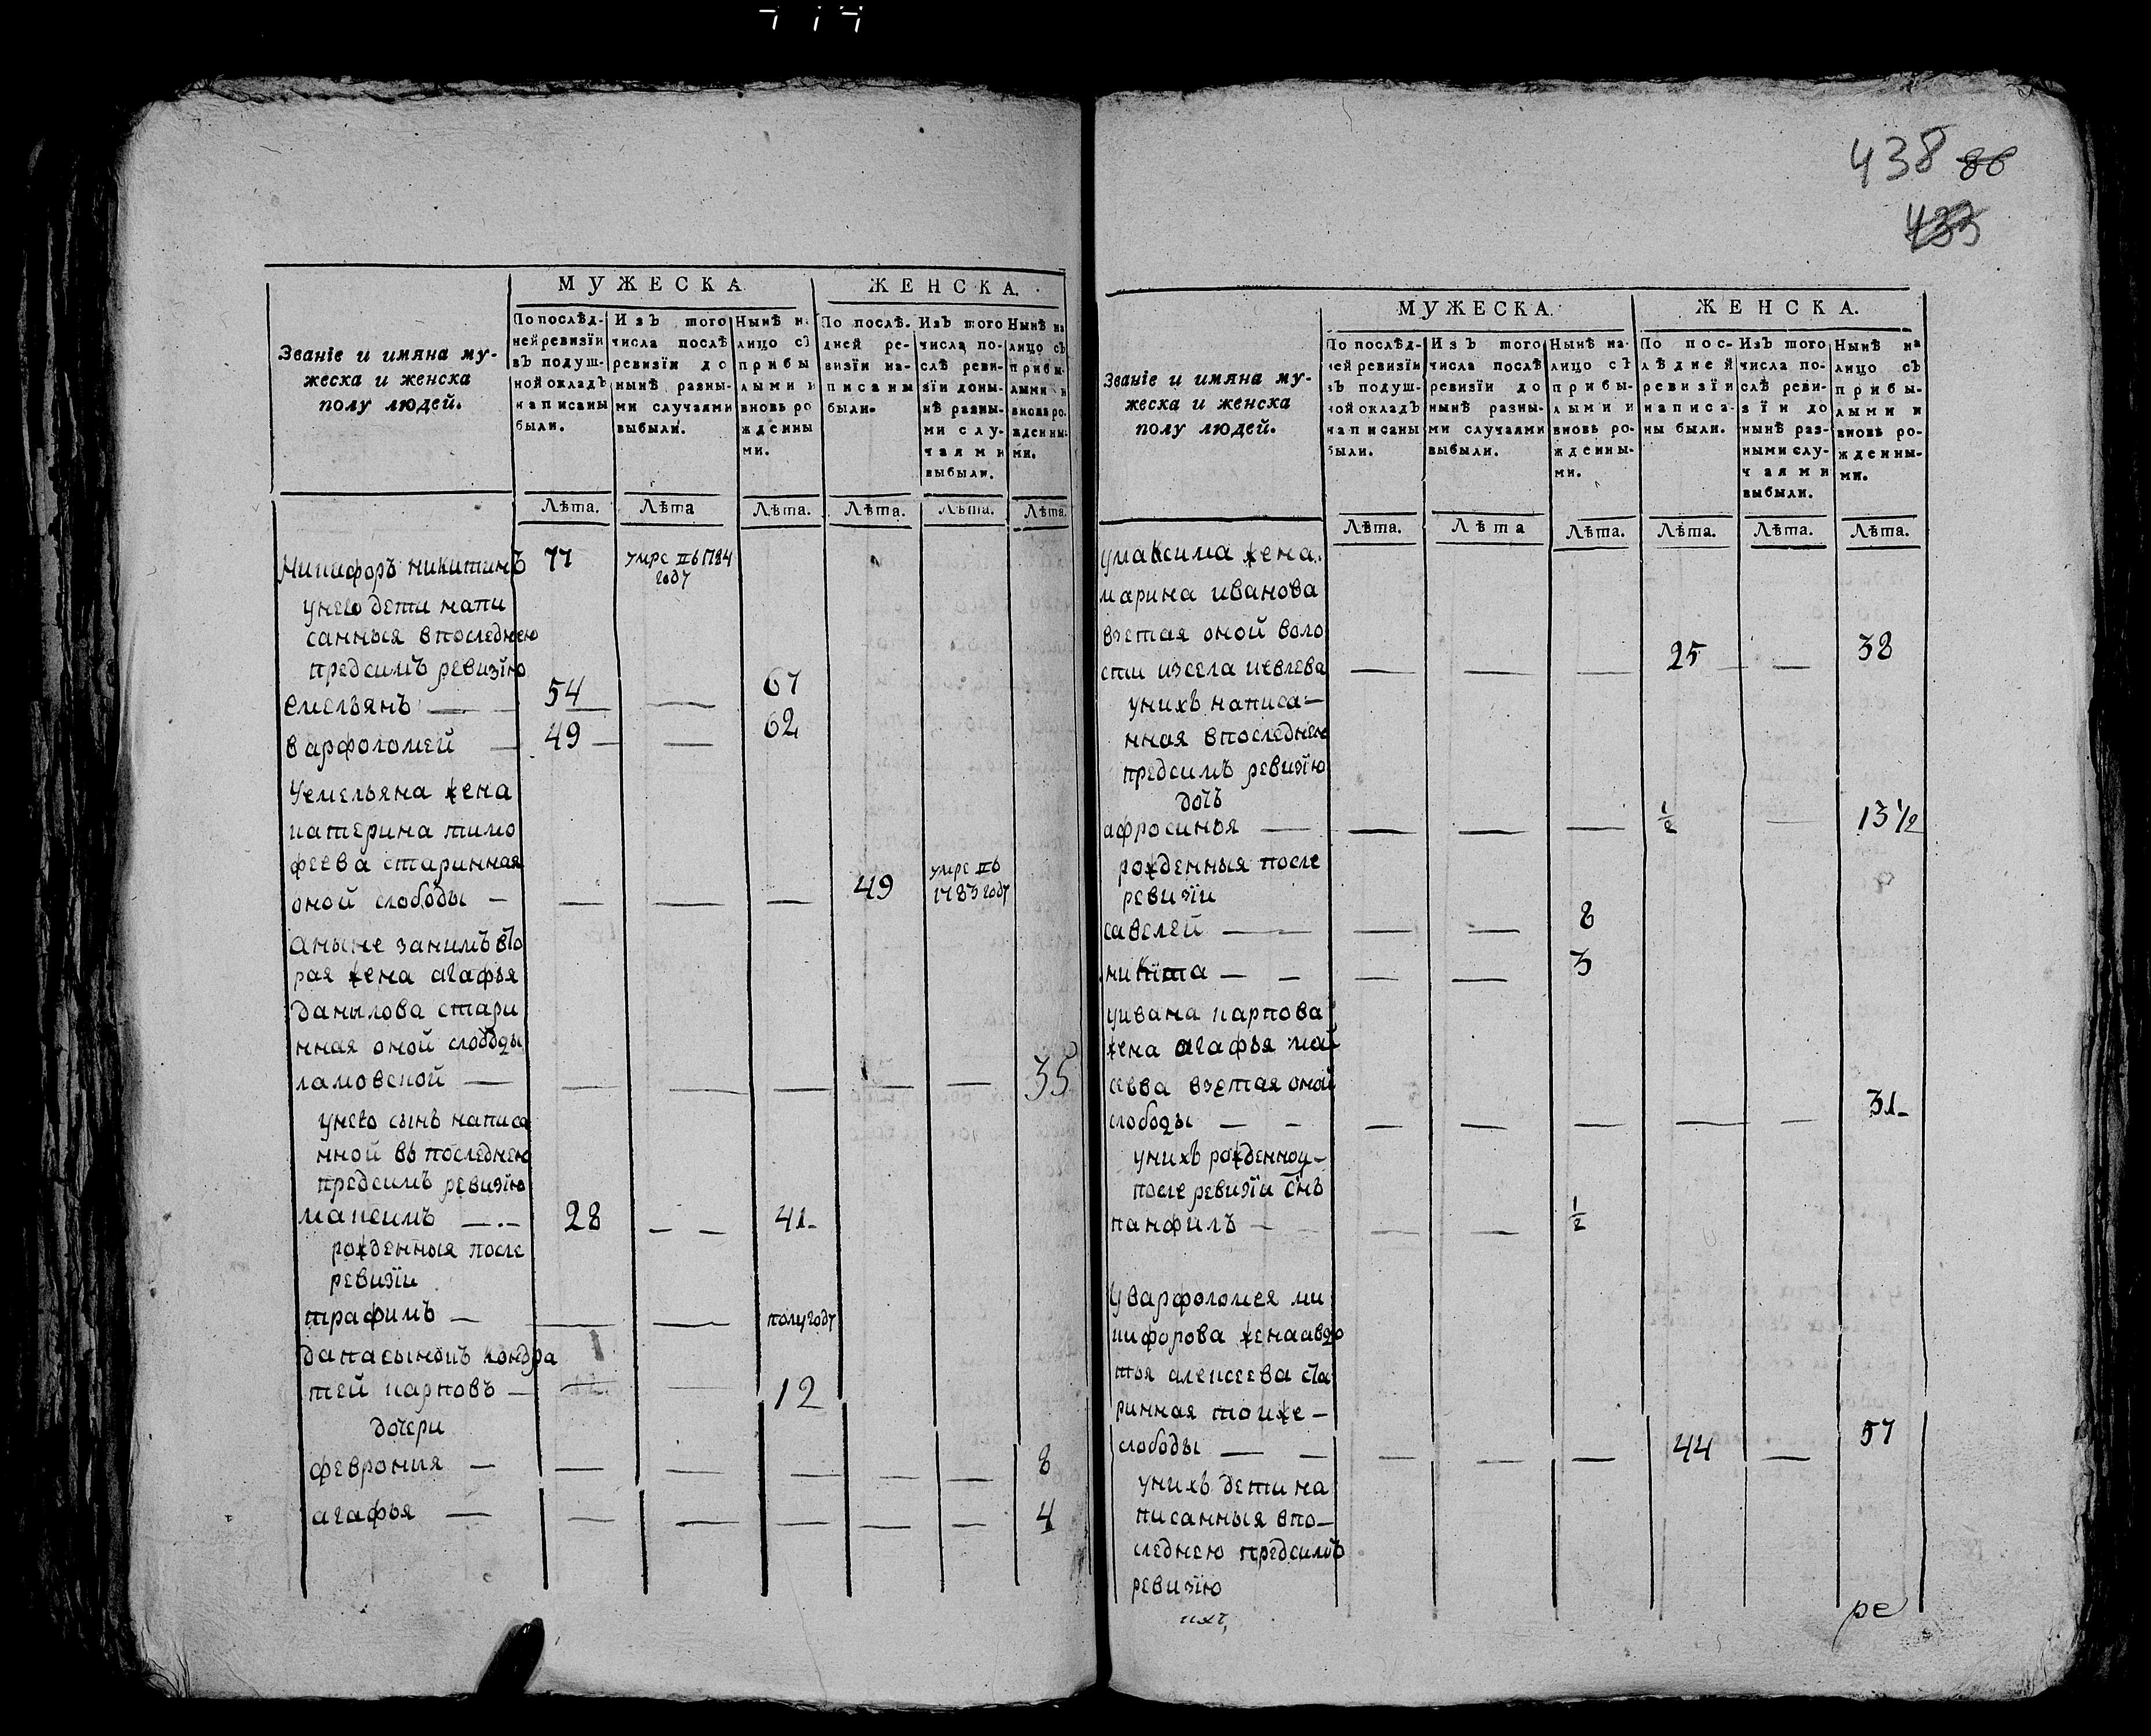 438 86
433
МУЖЕСКА
ЖЕНСКА.
Званіе и имяна му-
жеска и женска
полу людей.
По послѣд-
ней ревизїи
въ подуш-
ной окладъ
написаны
были.
Изъ того
числа послѣ
ревизїи до
нынѣ разны-
ми случаями
выбыли.
Нынѣ на
лицо съ
прибы
лыми и
вновь ро
жденны
ми.
По послѣ-
дней ре-
визїи на-
писаны
были.
Изъ того
числа по-
слѣ реви-
зїи доны-
нѣ разны-
ми слу-
чаями
выбыли.
Нынѣ на
лицо съ
прибы-
лыми и
вновь ро-
жденны-
ми.
Лѣта. Лѣта Лѣта. Лѣта. Лѣта. Лѣта.
Никифоръ никитинъ 77 умре въ 1784
году
унего дети напи
санныя впоследнею
предсимъ ревизїю
емельянъ — 54 — 67
варфоломей — 49 — — 62
Уемельяна жена
катерина тимо
феева старинная
оной слободы — — — — 49 умре въ
1783 году
аныне занимъ вто
рая жена агафья
данылова стари
нная оной слободы
ламовской — — — — — — 35
унего сынъ написа
нной въ последнею
предсимъ ревизїю
максимъ — 28 — — 41
рожденныя после
ревизїи
трафимъ — — — полугоду
дапасынокъ кондра
тей карповъ — — 12
дочери
феврония — — — — — — 8
агафья — — — — — — 4
МУЖЕСКА.
ЖЕНСКА.
Званіе и имяна му-
жеска и женска
полу людей.
По послѣд-
ней ревизїи
въ подуш-
ной окладъ
написаны
были.
Изъ того
числа послѣ
ревизїи до
нынѣ разны-
ми случаями
выбыли.
Нынѣ на-
лицо съ
прибы-
лыми и
вновь ро-
жденны-
ми.
По пос-
лѣдней
ревизїи
написа-
ны были.
Изъ того
числа по-
слѣ реви-
зїи до
нынѣ раз-
ными слу-
чаями
выбыли.
Нынѣ на
лицо съ
прибы-
лыми и
вновь ро-
жденны-
ми.
Лѣта. Лѣта Лѣта. Лѣта. Лѣта. Лѣта.
умаксима жена
марина иванова
взетая оной воло
сти изсела иевлева — — — 25 — 38
унихъ написа-
нная впоследнею
предсимъ ревизїю
дочь
афросинья — — — — ½ — 13 1/2
рожденныя после
ревизїи
савелей — — — 8
никита — — — — 3
уивана карпова
жена агафья мой
сеева взетая оной
слободы — — — — — — — 31
унихъ рожденноу-
после ревизїи снъ
панфилъ — — — ½
Уварфоломея ни
кифорова жена авдо
тья алексеева ста
ринная тоиже -
слободы — — — — — 44 — 57
унихъ дети на
писанныя впо-
следнею предсимъ
ревизїю
ихъ
ре